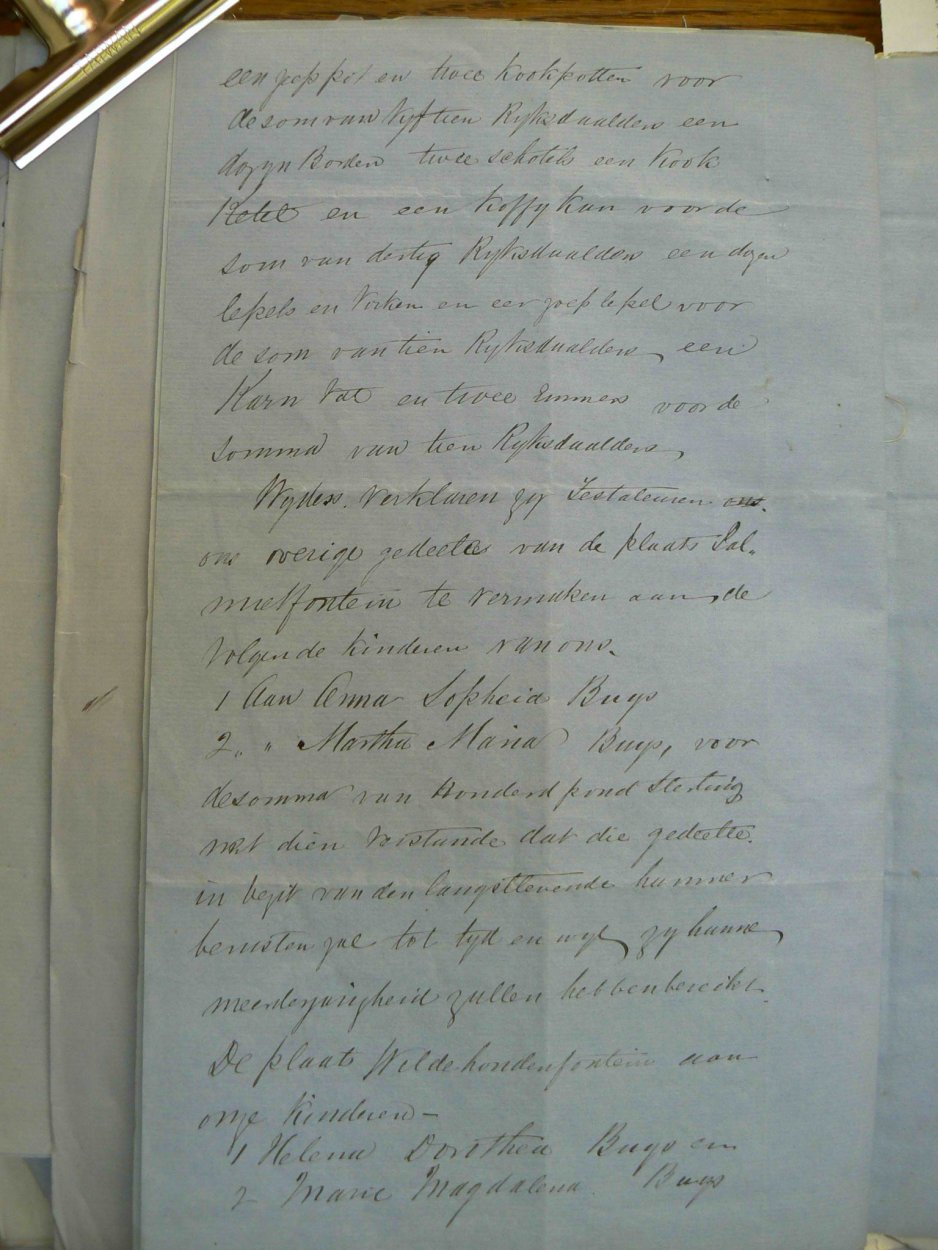 een zoep pot en twee kookpotten voor
de som van Vyftien Ryksdaalders een
dozyn Borden twee schotels een Kook
Ketel en een Koffy kan voor de
som van dertig Ryksdaalders een dozyn
lepels en Vorken en een zoep lepel voor
de som van tien Ryksdaalders, een
Karn Vat en twee Emmers voor de
somma van tien Ryksdaalders,
Wyders. Verklaren zy Testateuren ons.
ons overige gedeelte van de plaats Sal„
mielfontein te vermaken aan de
Volgende kinderen van ons.
1 Aan Anna Sopheia Buys
2„ „ Martha Maria Buys, voor
de somma van Honderd pond Sterling
met dien Verstande dat die gedeelte.
in bezit van den langstlevende hunner
berusten zal tot tyd en wyl zy hunne
meerderjarigheid zullen hebben bereikt.
De plaats Wildehondenfontein aan
onze kinderen –
1 Helena Dorothea Buys en
2 Maria Magdalena Buys